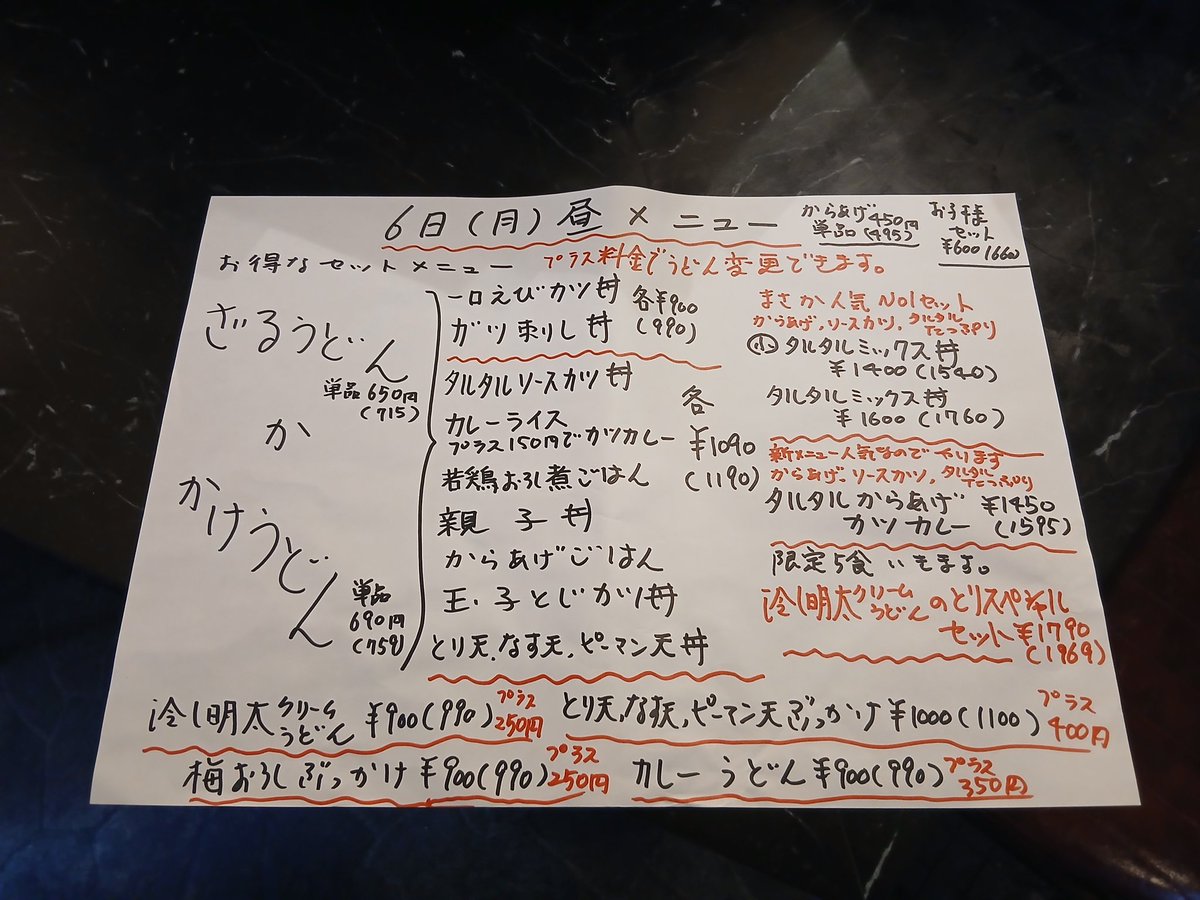 6日(月)昼メニュー
からあげ450円
単品(495)
お子様
セット
¥600(660)
お得なセットメニュー
プラス料金でうどん変更できます。
ざるうどん
単品650円
(715)
か
かけうどん
単品
690円
(759)
一口えびカツ丼
ガツ刺し丼
各¥900
(990)
タルタルソースカツ丼
カレーライス
プラス150円でカツカレー
若鶏おろし煮ごはん
親子丼
からあげごはん
玉子とじカツ丼
とり天,なす天,ピーマン天丼
各
¥1090
(1190)
まさか人気No1セット
からあげ,ソースカツ,タルタル
たっぷり
小タルタルミックス丼
¥1400(1540)
タルタルミックス丼
¥1600(1760)
新メニュー人気なのでやります
からあげ、ソースカツ,タルタル
たっぷり
タルタルからあげ ¥1450
カツカレー (1595)
限定5食いきます。
冷し明太クリーム
うどんのとりスペシャル
セット¥1790
(1969)
冷し明太クリーム
うどん ¥900(990)プラス
250円
とり天,なす天,ピーマン天ぶっかけ¥1000(1100)プラス
400円
梅おろしぶっかけ¥900(990)プラス
250円
カレーうどん¥900(990)プラス
350円